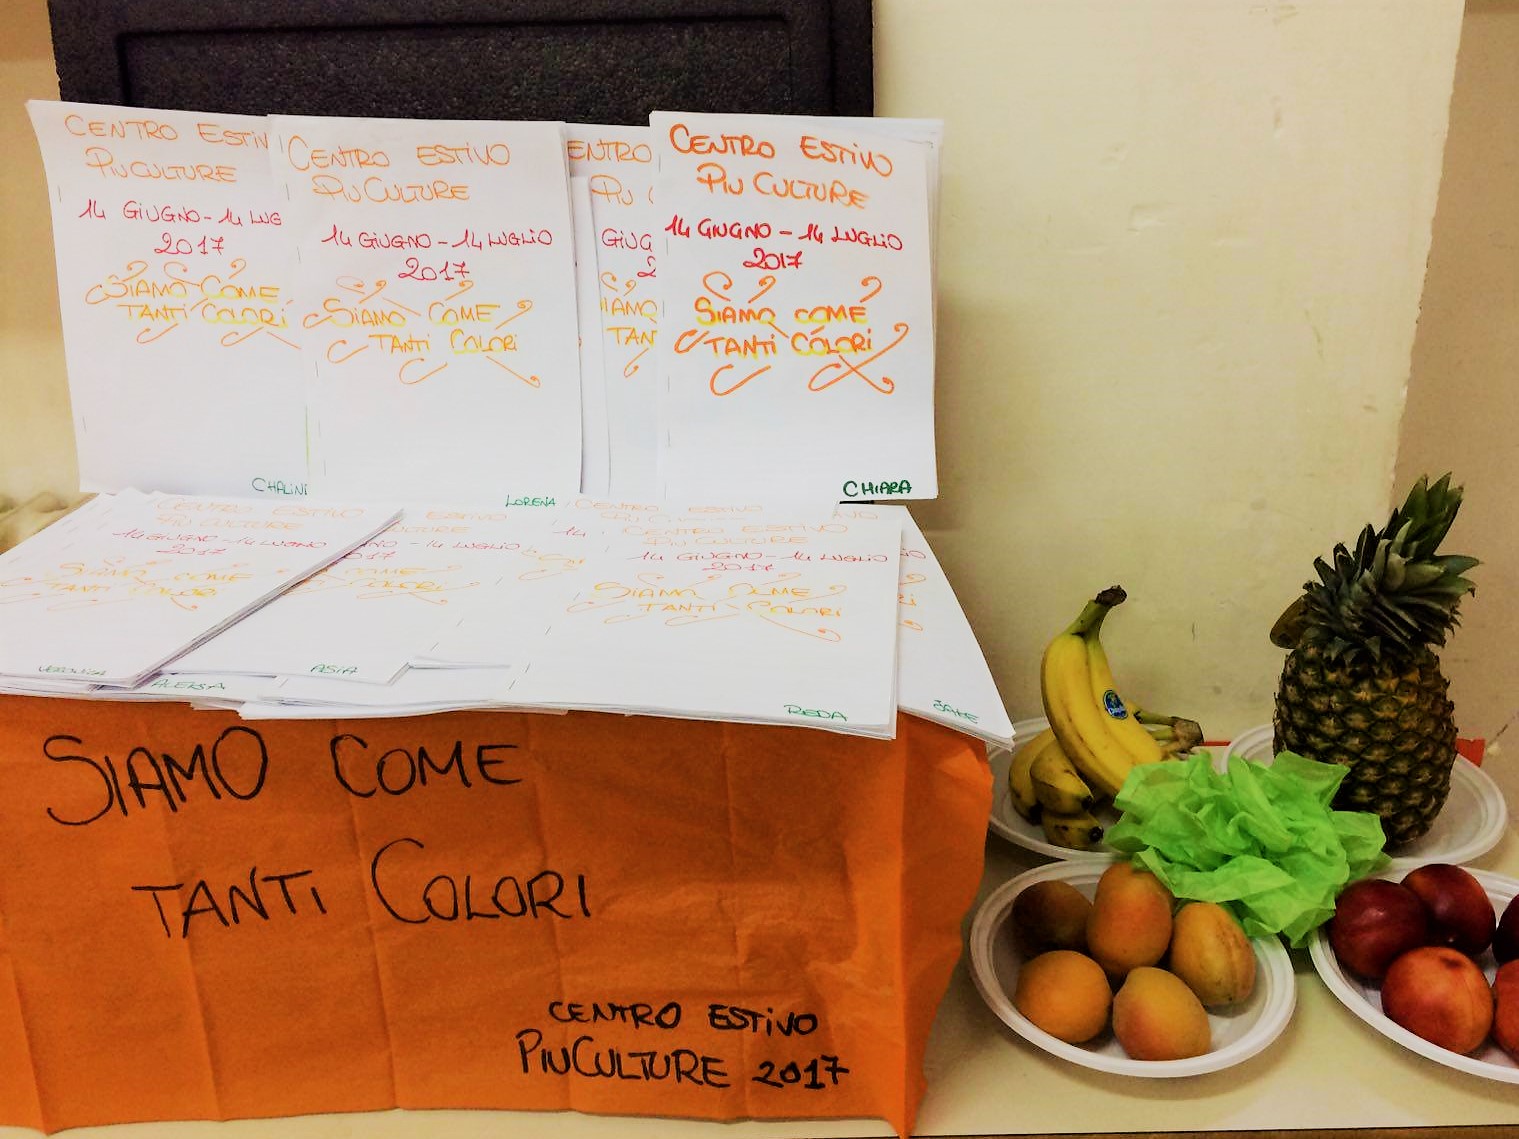 CENTRO ESTIV
PIUCULTURE
14 GIUGNO - 14 LUG
2017
SIAMO COME
TANTI COLORI
CHALINI
CENTRO ESTIVO
PIU CULTURE
14 GIUGNO - 14 LUGLIO
2017
SIAMO COME
TANTI COLORI
LORENA
ENTRO
PIU
GIUG
2
IAMO
TAN
CENTRO ESTIVO
PIU CULTURE
14 GIUGNO - 14 LUGLIO
2017
SIAMO COME
TANTI COLORI
CHIARA
CENTRO ESTIVO
PIU CULTURE
14 GIUGNO - 14 LUGLIO
2017
SIAMO COME
TANTI COLORI
VERONICA
ALEKSIA
ESTIVO
CULTURE
- 14 LUGLIO
2017
COME
COLORI
ASIA
CENTRO ESTIVO
14
CENTRO ESTIVO
PIU CULTURE
14 GIUGNO - 14 LUGLIO
2017
SIAMO COME
TANTI COLORI
REDA
JAKE
SIAMO COME
TANTI COLORI
CENTRO ESTIVO
PIUCULTURE 2017